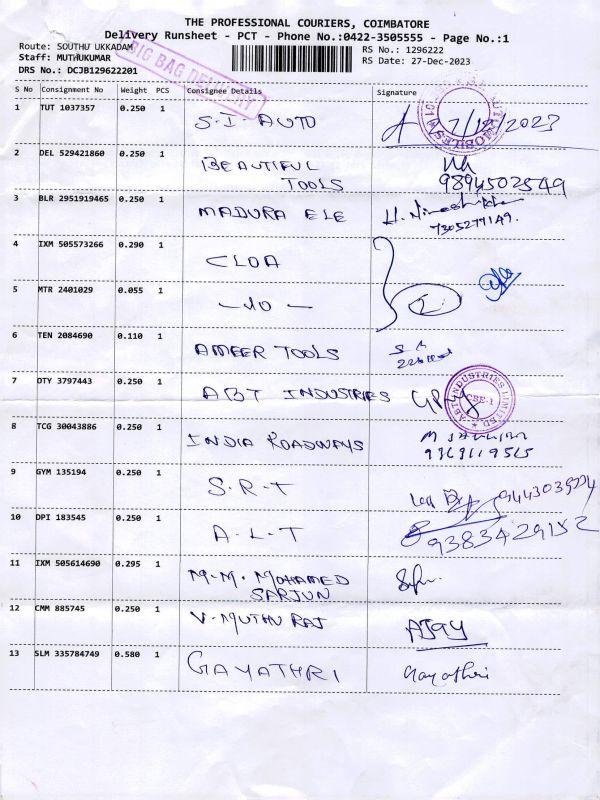 THE PROFESSIONAL COURIERS, COIMBATORE
Delivery Runsheet - PCT - Phone No.:0422-3505555 - Page No.:1
Route: SOUTHU UKKADAM
RS No.: 1296222
Staff: MUTHUKUMAR
RS Date: 27-Dec-2023
DRS No.: DCJB129622201
BIG BAG DELIVERY
S No Consignment No Weight PCS Consignee Details Signature
1 TUT 1037357 0.250 1 S.I. AUTO
2 DEL 529421860 0.250 1 BEAUTIFUL
TOOLS 9894502549
3 BLR 2951919465 0.250 1 MADURA ELE
7305277149.
4 IXM 505573266 0.290 1 CLOA
5 MTR 2401029 0.055 1 -do-
6 TEN 2084690 0.110 1 AMEER TOOLS
7 DTY 3797443 0.250 1 ABT INDUSTRIES
ABT INDUSTRIES LIMITED
CBE-1
8 TCG 30043886 0.250 1 INDIA ROADWAYS
9363119565
9 GYM 135194 0.250 1 S.R.T
10 DPI 183545 0.250 1 A.L.T 9383429152
11 IXM 505614690 0.295 1 M.M. MOHAMED
SARJUN
12 CMM 885745 0.250 1 V. MUTHU RAJ AJAY
13 SLM 335784749 0.580 1 GAYATHRI Gayathri